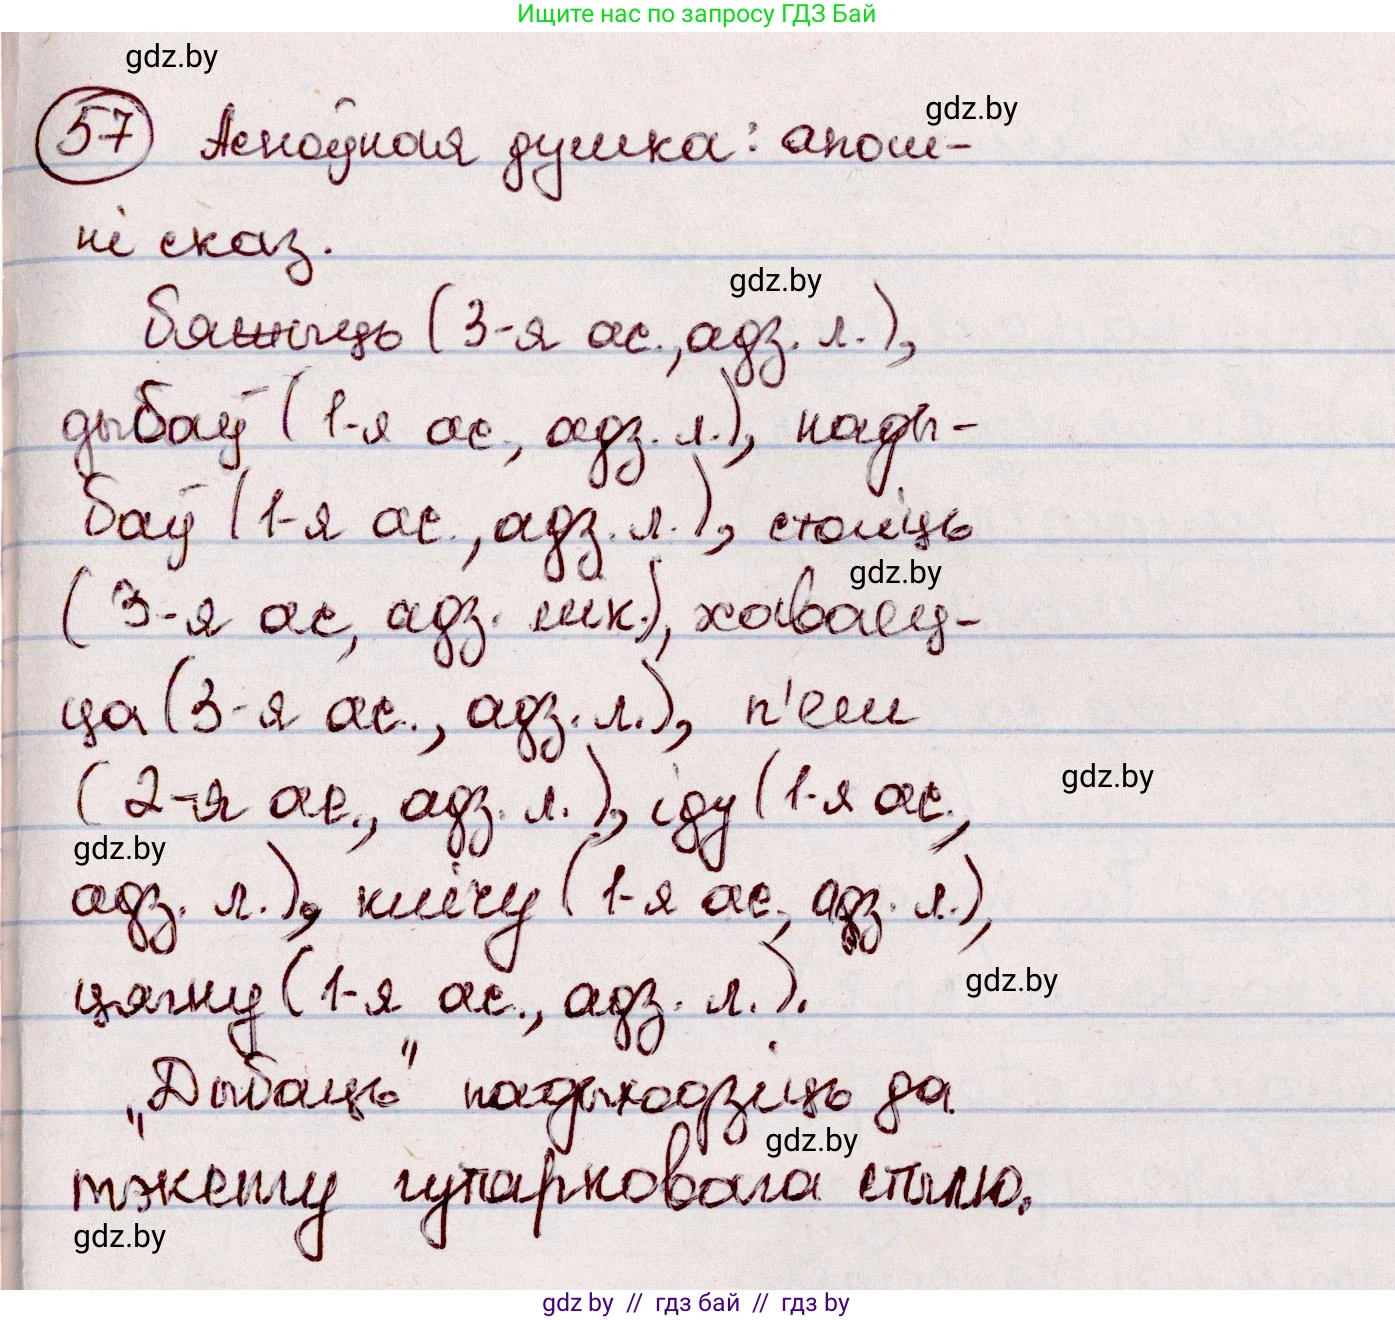 Ищите нас по запросу ГДЗ Бай
gdz.by
57 Асноўная думка: апош-
gdz.by
ні сказ.
gdz.by
бяжыць (3-я ас., адз. л.),
дыбаў (1-я ас., адз. л.), нады-
баў (1-я ас., адз. л.), стаіць
gdz.by
(3-я ас, адз. лік.), хаваец-
ца (3-я ас., адз. л.), п'еш
gdz.by
(2-я ас., адз. л.), іду (1-я ас.,
gdz.by
адз. л.), клічу (1-я ас., адз. л.),
gdz.by
цягну (1-я ас., адз. л.).
„Дыбаць" падыходзіць да
gdz.by
тэксту гутарковага стылю.
gdz.by
gdz by // гдз бай // гдз by